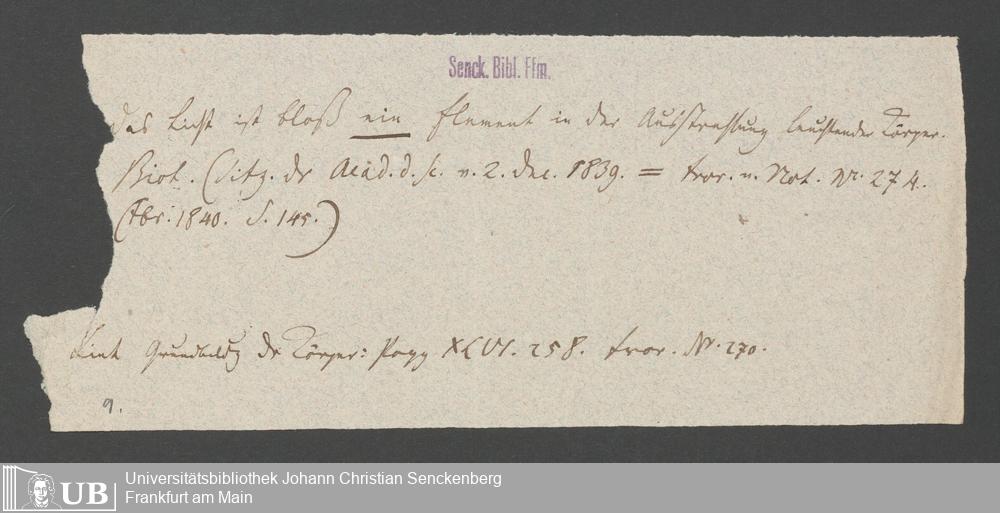 Senck. Bibl. Ffm.
Das Licht ist bloß ein Element in der Ausstrahlung leuchtender Körper.
Biot. (Sitz. dr Acad. d. sc. v. 2. Dec. 1839. = Fror. n. Not. Nr. 274.
(Fbr. 1840. S. 145.)
Grundbildg dr Körper: Pogg XLVI. 258. Fror. Nr. 270.
9.
UB
Universitätsbibliothek Johann Christian Senckenberg
Frankfurt am Main